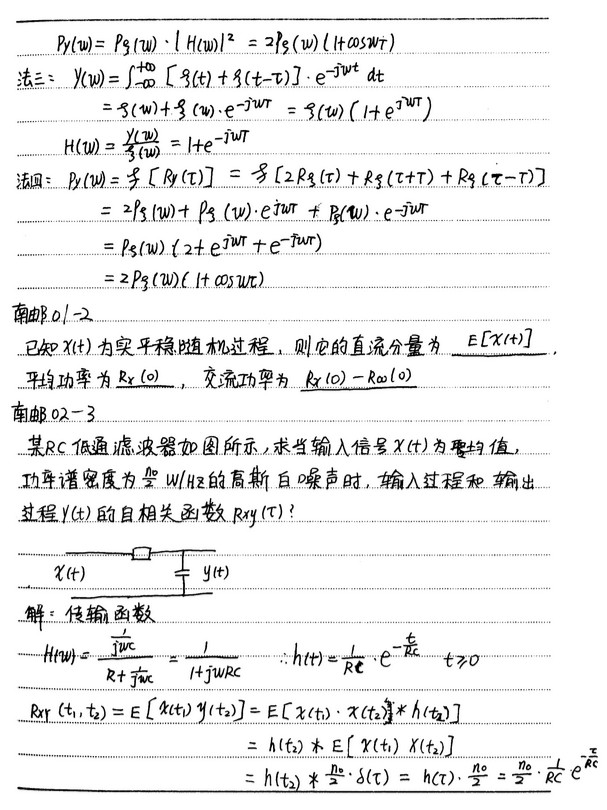 Py(ω) = Pξ(ω)·|H(ω)|² = 2Pξ(ω)(1+cosωτ)
法三: Y(ω) = ∫_{-∞}^{+∞} [ξ(t)+ξ(t-τ)]·e^{-jωt} dt
= ξ(ω)+ξ(ω)·e^{-jωτ} = ξ(ω)(1+e^{jωτ})
H(ω) = Y(ω)/ξ(ω) = 1+e^{-jωτ}
法四: Py(ω) = 𝓕[Ry(τ)] = 𝓕[2Rξ(τ)+Rξ(τ+T)+Rξ(τ-T)]
= 2Pξ(ω)+Pξ(ω)·e^{jωτ}+Pξ(ω)·e^{-jωτ}
= Pξ(ω)(2+e^{jωτ}+e^{-jωτ})
= 2Pξ(ω)(1+cosωτ)
南邮01-2
已知X(t)为实平稳随机过程,则它的直流分量为 E[X(t)].
平均功率为Rx(0),交流功率为 Rx(0)-R∞(0)
南邮02-3
某RC低通滤波器如图所示,求当输入信号X(t)为零均值,
功率谱密度为n₀/2 W/HZ的高斯白噪声时,输入过程和输出
过程Y(t)的自相关函数Rxy(τ)?
X(t) y(t)
解:传输函数
H(ω) = (1/jωc)/(R+1/jωc) = 1/(1+jωRC) ∴h(t) = 1/RC·e^{-t/RC} t≥0
Rxy(t₁,t₂) = E[X(t₁)y(t₂)] = E[X(t₁)·X(t₂)*h(t₂)]
= h(t₂)*E[X(t₁)X(t₂)]
= h(t₂)*n₀/2·δ(τ) = h(τ)·n₀/2 = n₀/2·1/RC e^{-τ/RC}